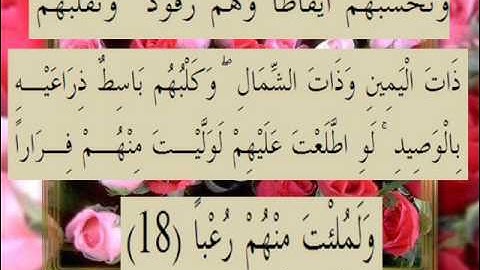 وَتَحْسَبُهُمْ أَيْقَاظًا وَهُمْ رُقُودٌ ۚ وَنُقَلِّبُهُمْ
ذَاتَ الْيَمِينِ وَذَاتَ الشِّمَالِ ۖ وَكَلْبُهُم بَاسِطٌ ذِرَاعَيْهِ
بِالْوَصِيدِ ۚ لَوِ اطَّلَعْتَ عَلَيْهِمْ لَوَلَّيْتَ مِنْهُمْ فِرَاراً
وَلَمُلِئْتَ مِنْهُمْ رُعْباً (18)